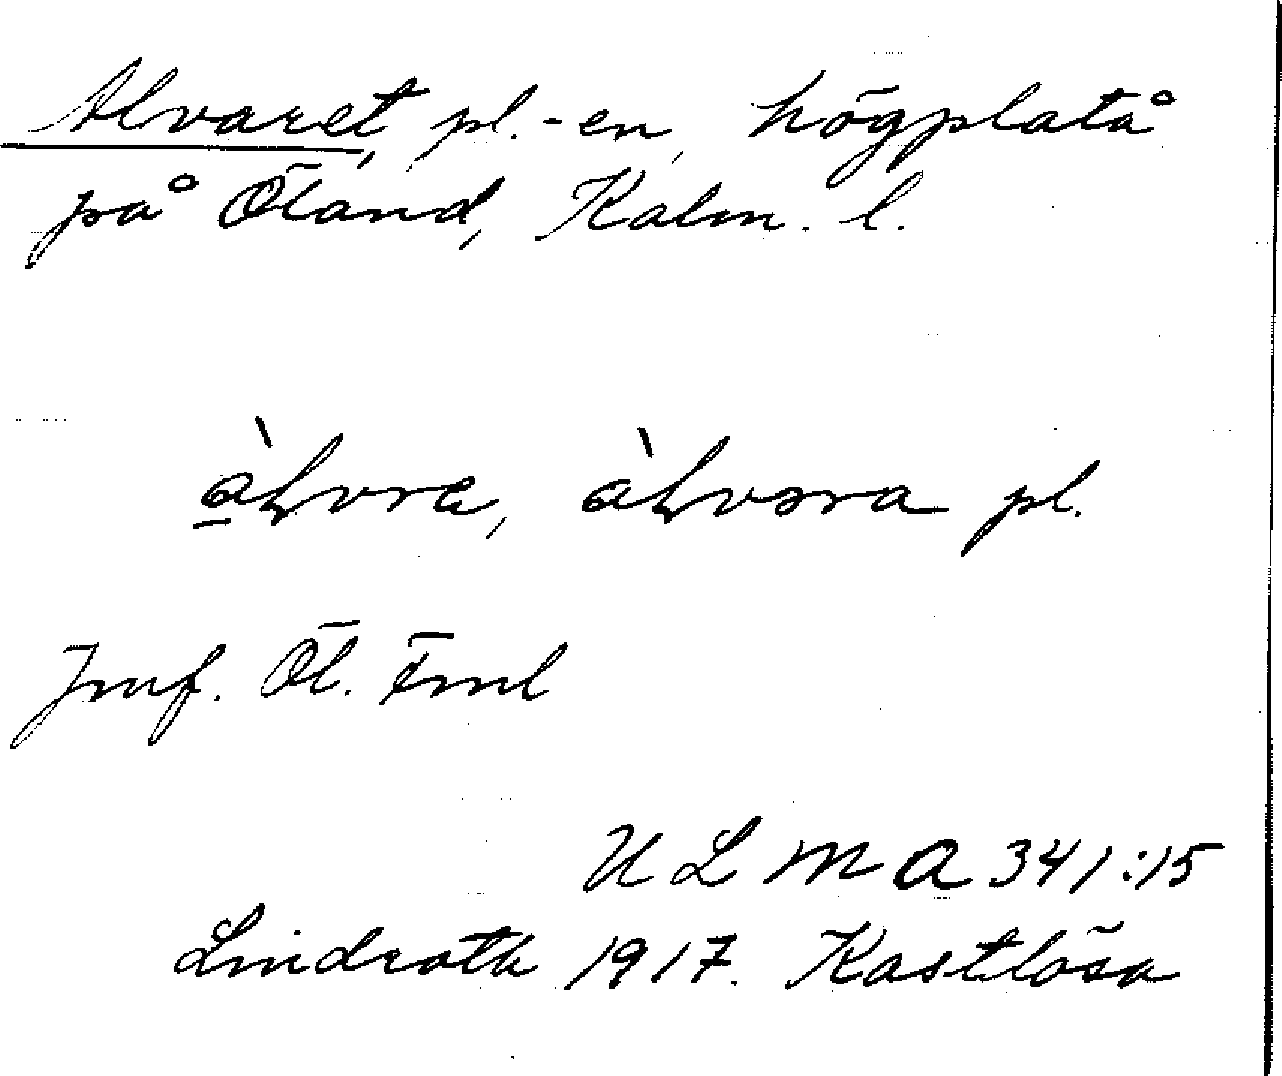 Alvaret, pl. -en, högplatå
på Öland, Kalm. l.
pl.
Jmf. Öl. Fml
ULMA 341:15
Lindroth 1917. Kastlösa